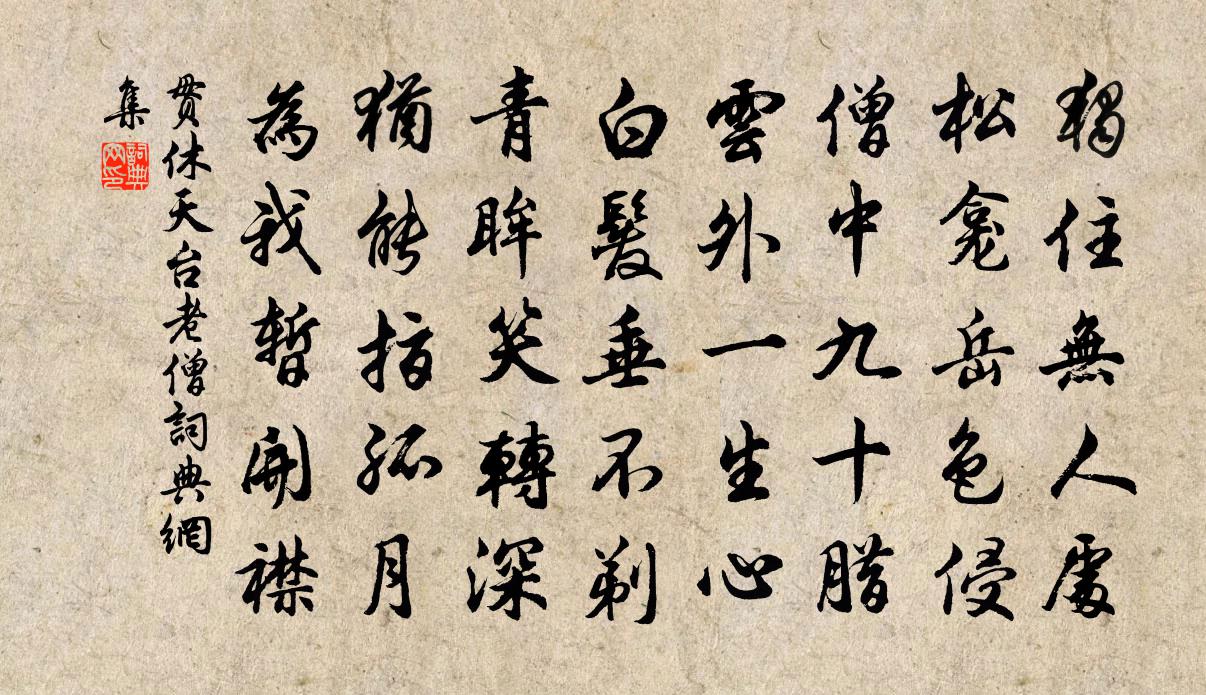 獨住無人處
松龕岳色侵
僧中九十臘
雲外一生心
白髮垂不剃
青眸笑轉深
猶能指孤月
為我暫開襟
貫休天台老僧詞典網
集
詞典
网印